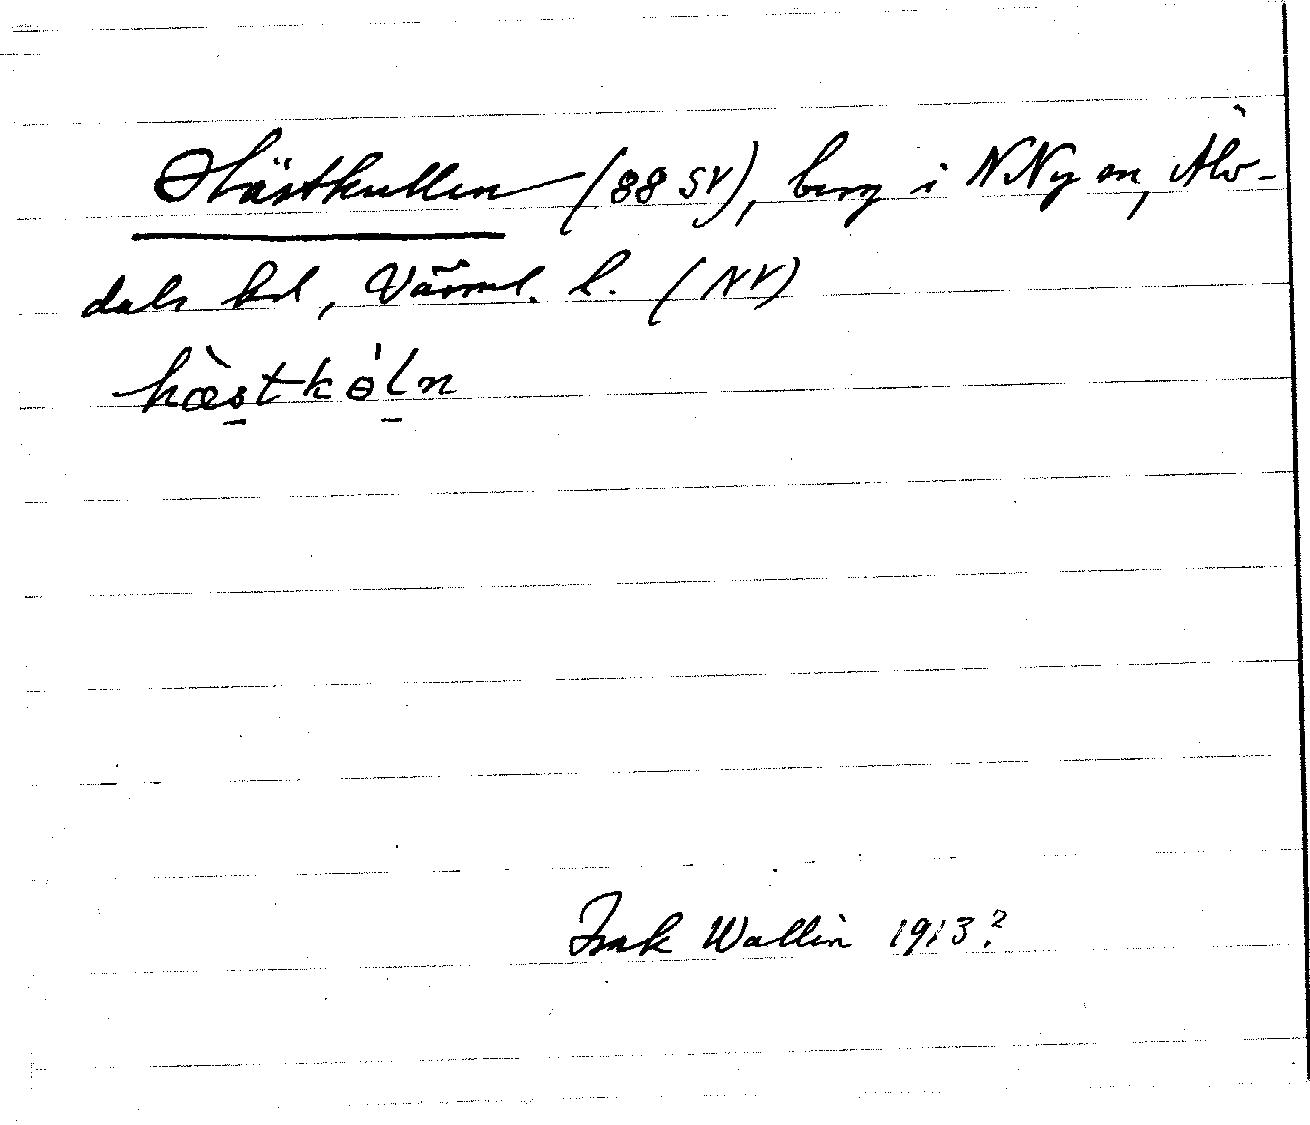 Hästkullen (88 SV), berg i N Ny sn, Älv-
dals hd, Värml. l. (NV)
hæ̀stkɵ̍ln
Isak Wallin 1913?